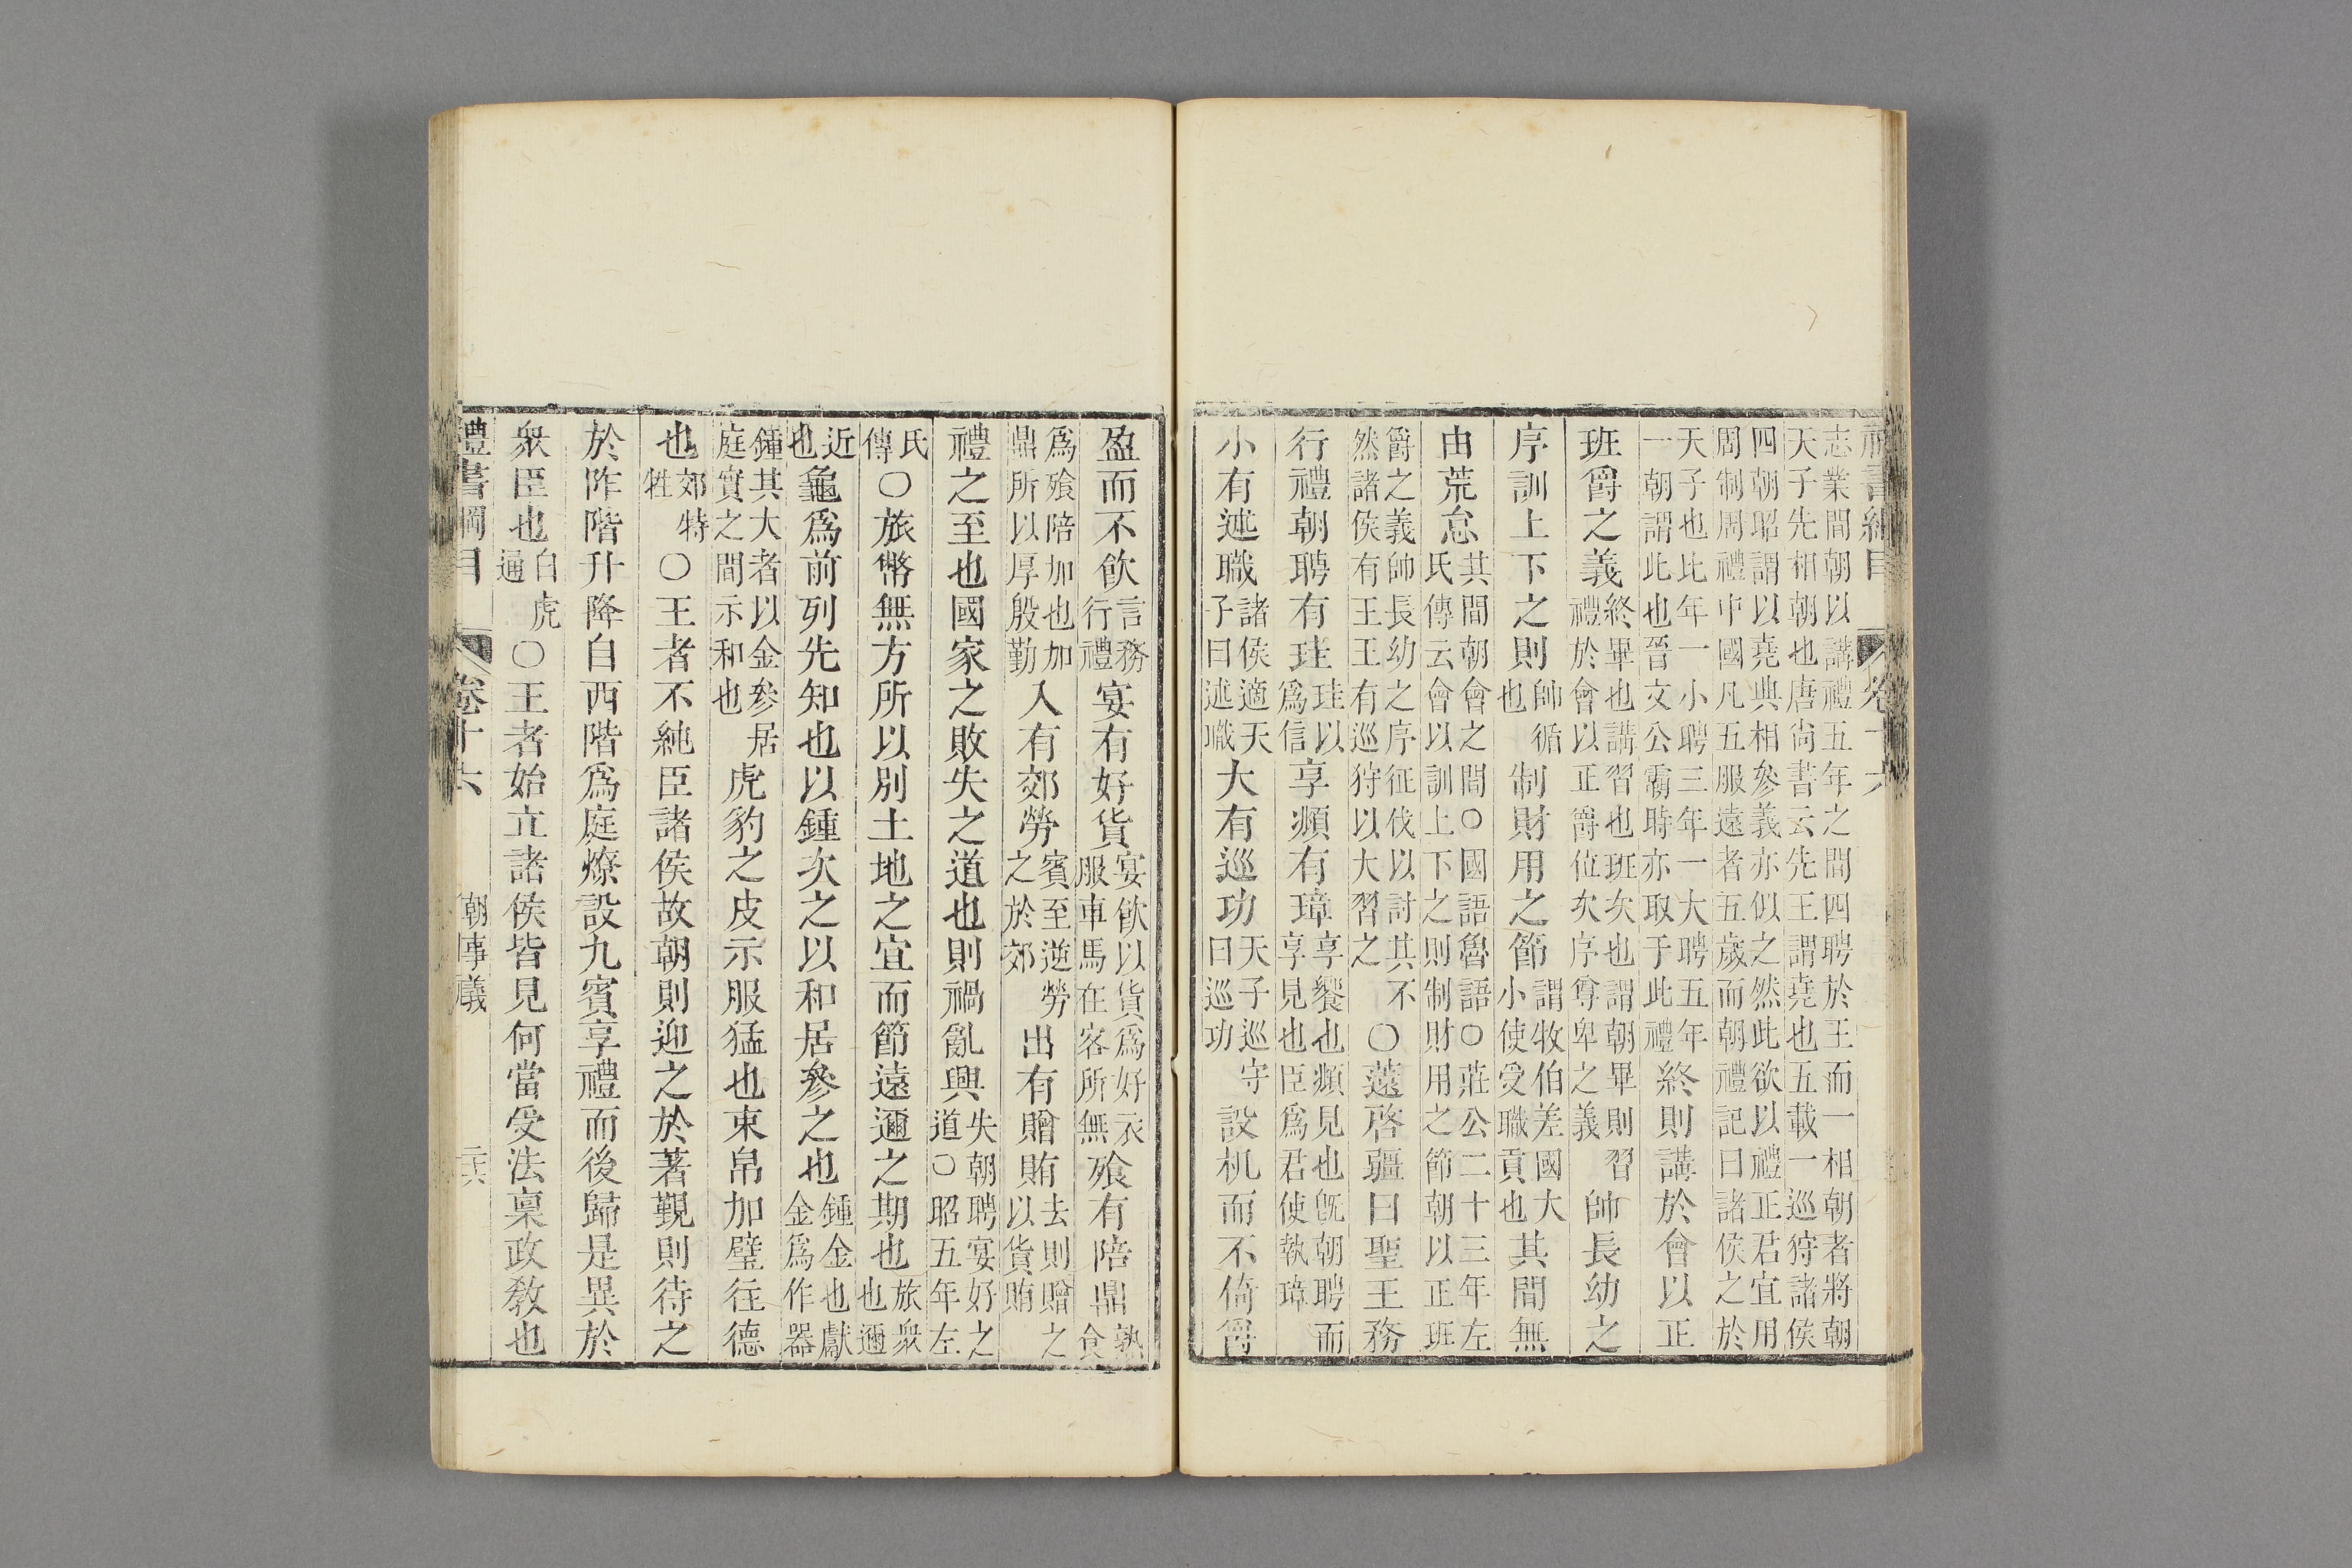 禮書綱目 卷十六
志業間朝以講禮五年之間四聘於王而一相朝者將朝
天子先相朝也唐尚書云先王謂堯也五載一巡狩諸侯
四朝昭謂以堯典相參義亦似之然此欲以禮正君宜用
周制周禮中國凡五服遠者五歲而朝禮記曰諸侯之於
天子也比年一小聘三年一大聘五年
一朝謂此也晉文公霸時亦取于此禮
終則講於會以正
班爵之義
終畢也講習也班次也謂朝畢則習
禮於會以正爵位次序尊卑之義
帥長幼之
序訓上下之則
帥循
也
制財用之節
謂牧伯差國大
小使受職貢也
其間無
由荒怠
其間朝會之間○國語魯語○莊公二十三年左
氏傳云會以訓上下之則制財用之節朝以正班
爵之義帥長幼之序征伐以討其不
然諸侯有王王有巡狩以大習之
○薳啓疆曰聖王務
行禮朝聘有珪
珪以
爲信
享頫有璋
享饗也頫見也旣朝聘而
享見也臣爲君使執璋
小有述職
諸侯適天
子曰述職
大有巡功
天子巡守
曰巡功
設机而不倚爵
盈而不飮
言務
行禮
宴有好貨
宴飮以貨爲好衣
服車馬在客所無
飱有陪鼎
熟
食
爲飱陪加也加
鼎所以厚殷勤
入有郊勞
賓至逆勞
之於郊
出有贈賄
去則贈之
以貨賄
禮之至也國家之敗失之道也則禍亂興
失朝聘宴好之
道○昭五年左
氏
傳
○旅幣無方所以別土地之宜而節遠邇之期也
旅衆
也邇
近
也
龜爲前列先知也以鍾次之以和居參之也
鍾金也獻
金爲作器
鍾其大者以金參居
庭實之間示和也
虎豹之皮示服猛也束帛加璧往德
也
郊特
牲
○王者不純臣諸侯故朝則迎之於著覲則待之
於阼階升降自西階爲庭燎設九賓享禮而後歸是異於
衆臣也
白虎
通
○王者始立諸侯皆見何當受法稟政敎也
禮書綱目 卷十六 朝事義 二六